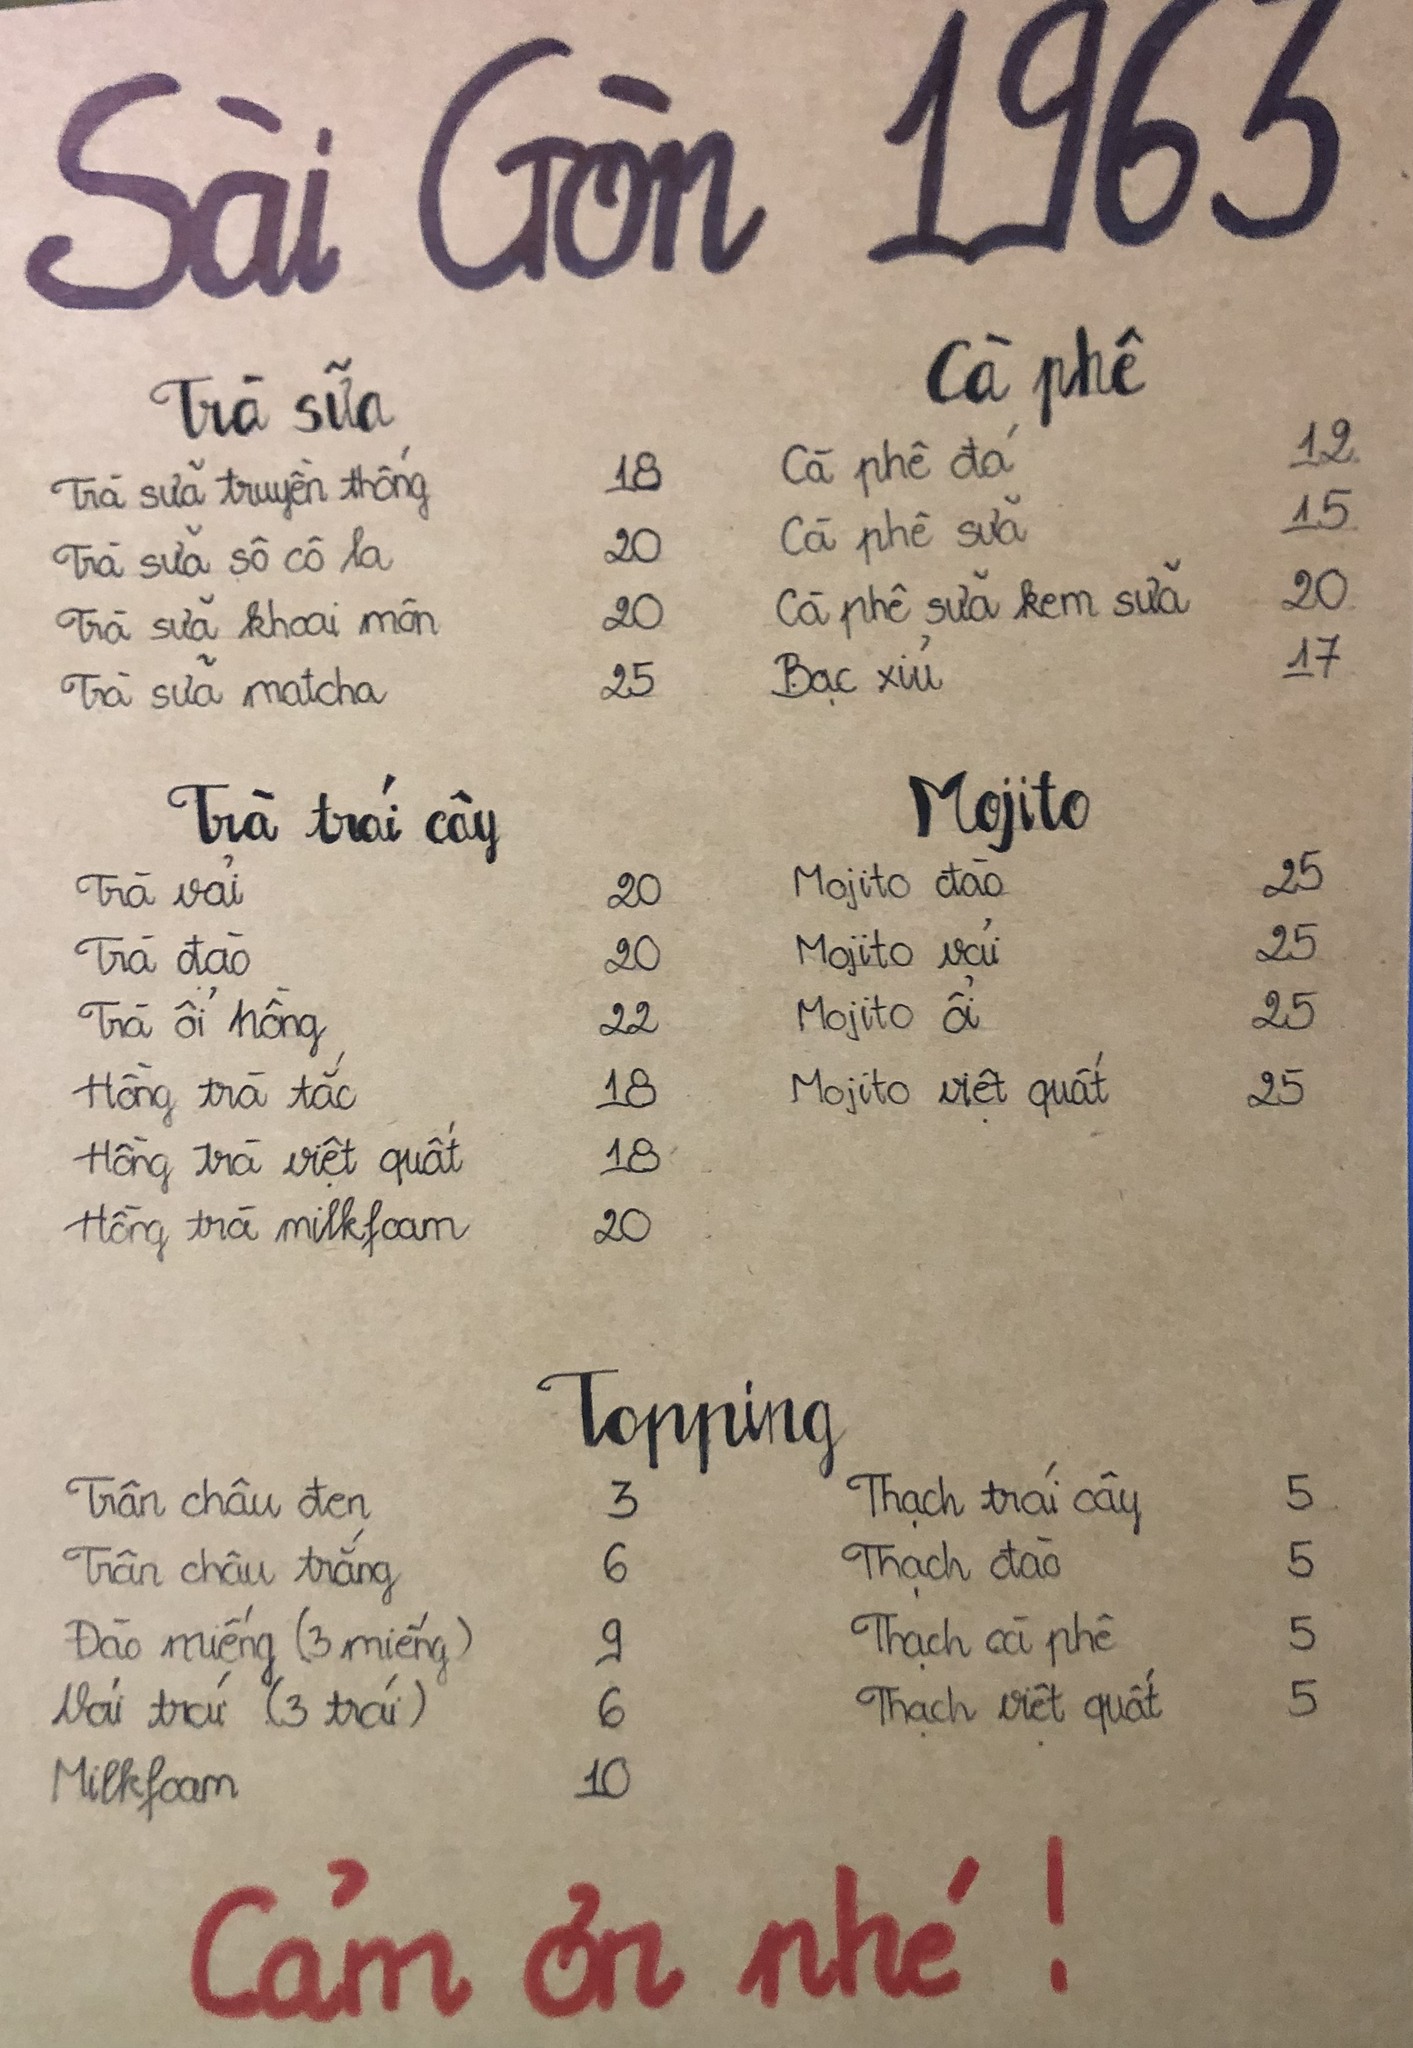 Sài Gòn 1963
Trà sữa
Trà sữa truyền thống 18
Trà sữa sô cô la 20
Trà sữa khoai môn 20
Trà sữa matcha 25
Cà phê
Cà phê đá 12
Cà phê sữa 15
Cà phê sữa kem sữa 20
Bạc xỉu 17
Trà trái cây
Trà vải 20
Trà đào 20
Trà ổi hồng 22
Hồng trà tắc 18
Hồng trà việt quất 18
Hồng trà milkfoam 20
Mojito
Mojito đào 25
Mojito vải 25
Mojito ổi 25
Mojito việt quất 25
Topping
Trân châu đen 3
Trân châu trắng 6
Đào miếng (3 miếng) 9
Vải trái (3 trái) 6
Milkfoam 10
Thạch trái cây 5
Thạch đào 5
Thạch cà phê 5
Thạch việt quất 5
Cảm ơn nhé !